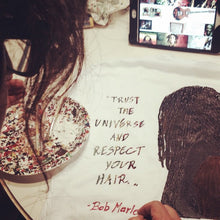 "TRUST
THE
UNIVERSE
AND
RESPECT
YOUR
HAIR."
-Bob Marley